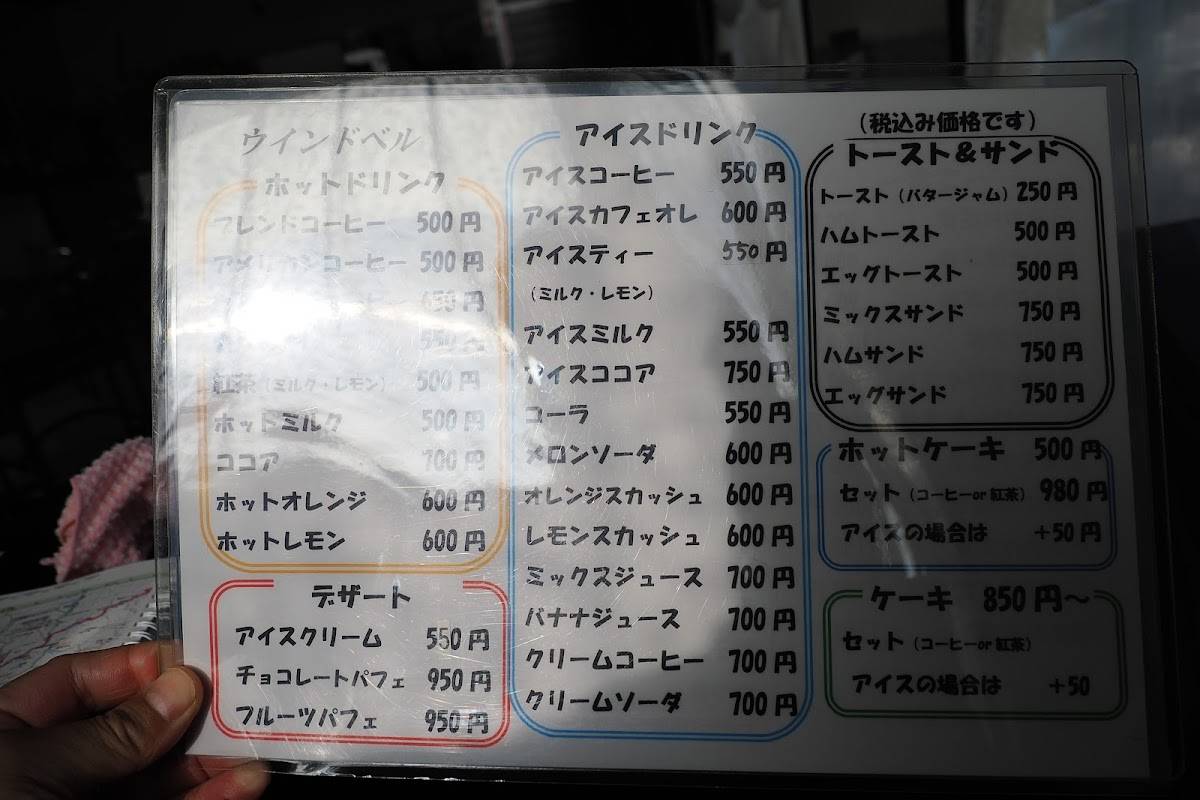 ウインドベル
ホットドリンク
ブレンドコーヒー 500円
アメリカンコーヒー 500円
650円
550円
紅茶(ミルク・レモン) 500円
ホットミルク 500円
ココア 700円
ホットオレンジ 600円
ホットレモン 600円
デザート
アイスクリーム 550円
チョコレートパフェ 950円
フルーツパフェ 950円
アイスドリンク
アイスコーヒー 550円
アイスカフェオレ 600円
アイスティー 550円
(ミルク・レモン)
アイスミルク 550円
アイスココア 750円
コーラ 550円
メロンソーダ 600円
オレンジスカッシュ 600円
レモンスカッシュ 600円
ミックスジュース 700円
バナナジュース 700円
クリームコーヒー 700円
クリームソーダ 700円
(税込み価格です)
トースト&サンド
トースト(バタージャム) 250円
ハムトースト 500円
エッグトースト 500円
ミックスサンド 750円
ハムサンド 750円
エッグサンド 750円
ホットケーキ 500円
セット(コーヒーor紅茶) 980円
アイスの場合は +50円
ケーキ 850円~
セット(コーヒーor紅茶)
アイスの場合は +50